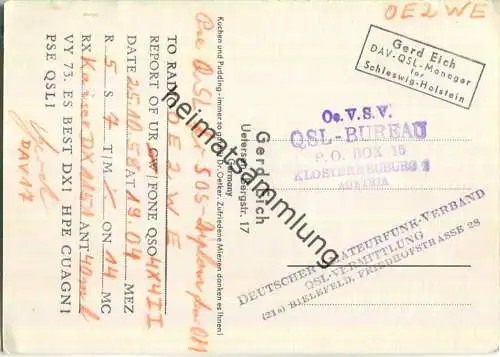 OE2WE
Gerd Eich
DAV-QSL-Manager
für
Schleswig-Holstein
Oe.V.S.V.
QSL-BUREAU
P.O. BOX 15
KLOSTERNEUBURG 2
AUSTRIA
DEUTSCHER AMATEURFUNK-VERBAND
QSL-VERMITTLUNG
(21a) BIELEFELD, FRIEDROFSTRASSE 28
Gerd Eich
Uetersen, bergstr. 17
Germany
Kuchen und Pudding - immer so gut Dr. Oetker. Zufriedene Mienen danken es Ihnen!
Pse QSL SOS-Diplom
TO RADIO OE2WE
REPORT OF UR CW/FONE QSO 4X4II
DATE 25.10.58 AT 19.04 MEZ
R 5 S 7 T/M / ON 14 MC
RX Kaiser DX 1151 ANT 40m l
VY 73. ES BEST DX! HPE CUAGN!
PSE QSL!
Gerd
DAV 17
heimatsammlung